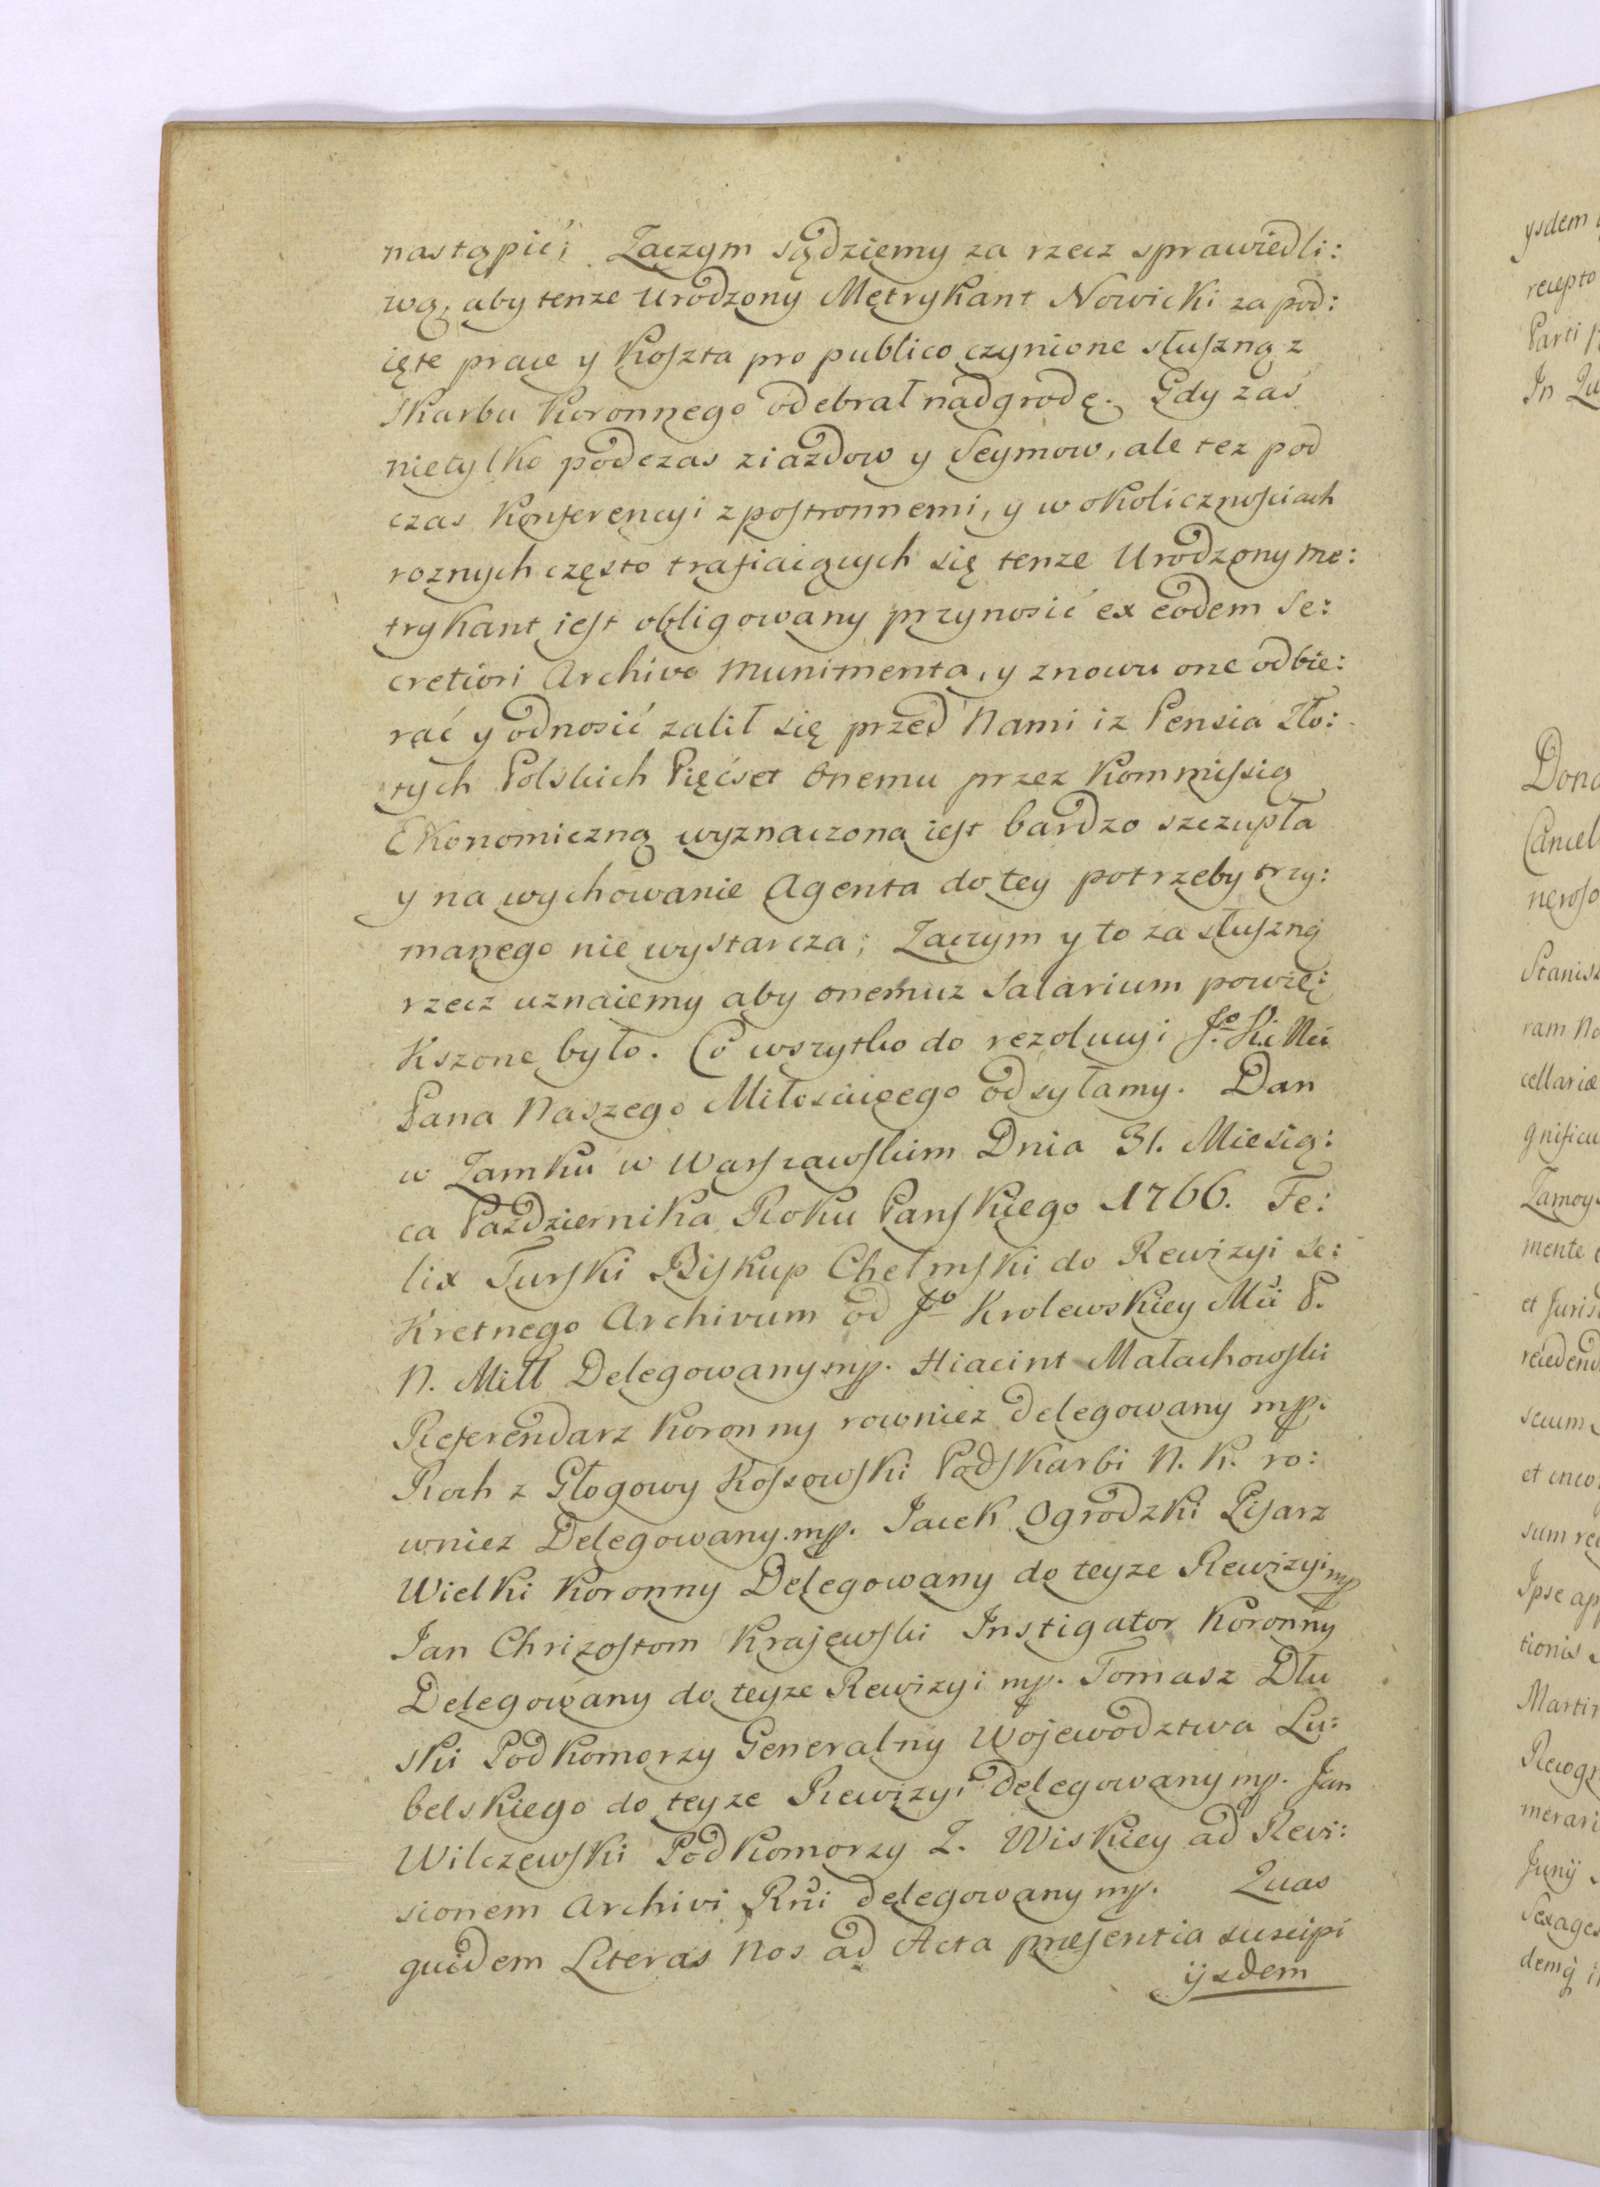 nastąpić; Zaczym sądziemy za rzecz sprawiedli:
wą, aby tenze Urodzony Metrykant Nowicki za pod:
ięte prace y Koszta pro publico czynione słuszną z
Skarbu Koronnego odebrał nadgrodę. Gdy zaś
nietylko podczas ziazdow y Seymow, ale tez pod
czas Konferencyi z postronnemi, y w okolicznościach
roznych często trafiaiących się tenze Urodzony Me:
trykant iest obligowany przynosić ex eodem Se:
cretiori Archivo Munimenta, y znowu one odbie:
rać y odnosić zalił się przed Nami iz Pensia Zło:
tych Polskich Pięćset Onemu przez Kommissią
Ekonomiczną wyznaczona iest bardzo szczupła
y na wychowanie Agenta do tey potrzeby trzy:
manego nie wystarcza; Zaczym y to za słuszną
rzecz uznaiemy aby onemuz Salarium powię:
Kszone było. Co wszytko do rezolucyi J.º K. Mci
Pana Naszego Miłościwego odsyłamy. Dan
w Zamku w Warszawskim Dnia 31. Miesią:
ca Pazdziernika Roku Panskiego 1766. Fe:
lix Turski Biskup Chełmski do Rewizyi Se:
Kretnego Archivum od Jº Krolewskiey Mci P.
N. Miłł Delegowany mp. Hiacint Małachowski
Referendarz Koronny rowniez delegowany mp.
Roch z Głogowy Kossowski Podskarbi N. K. ro:
wniez Delegowany. mp. Jacek Ogrodzki Pisarz
Wielki Koronny Delegowany do teyze Rewizyi mp
Jan Chrizostom Krajewski Instigator Koronny
Delegowany do teyze Rewizyi mp. Tomasz Dłu
ski Podkomorzy Generalny Wojewodztwa Lu:
belskiego do teyze Rewizyi delegowany mp. Jan
Wilczewski Podkomorzy Z. Wiskiey ad Revi:
sionem Archivi Rni delegowany mp. Quas
quidem Literas Nos ad Acta præsentia suscipi
ijsdem
ysdem
recepto
Parti
In
Cancel
Stanis
ram No
cellariæ
gnificu
Zamoys
mente
et Juris
recedend
sum
Ipse ap
tionis
Martin
merari
Junij
Sexages